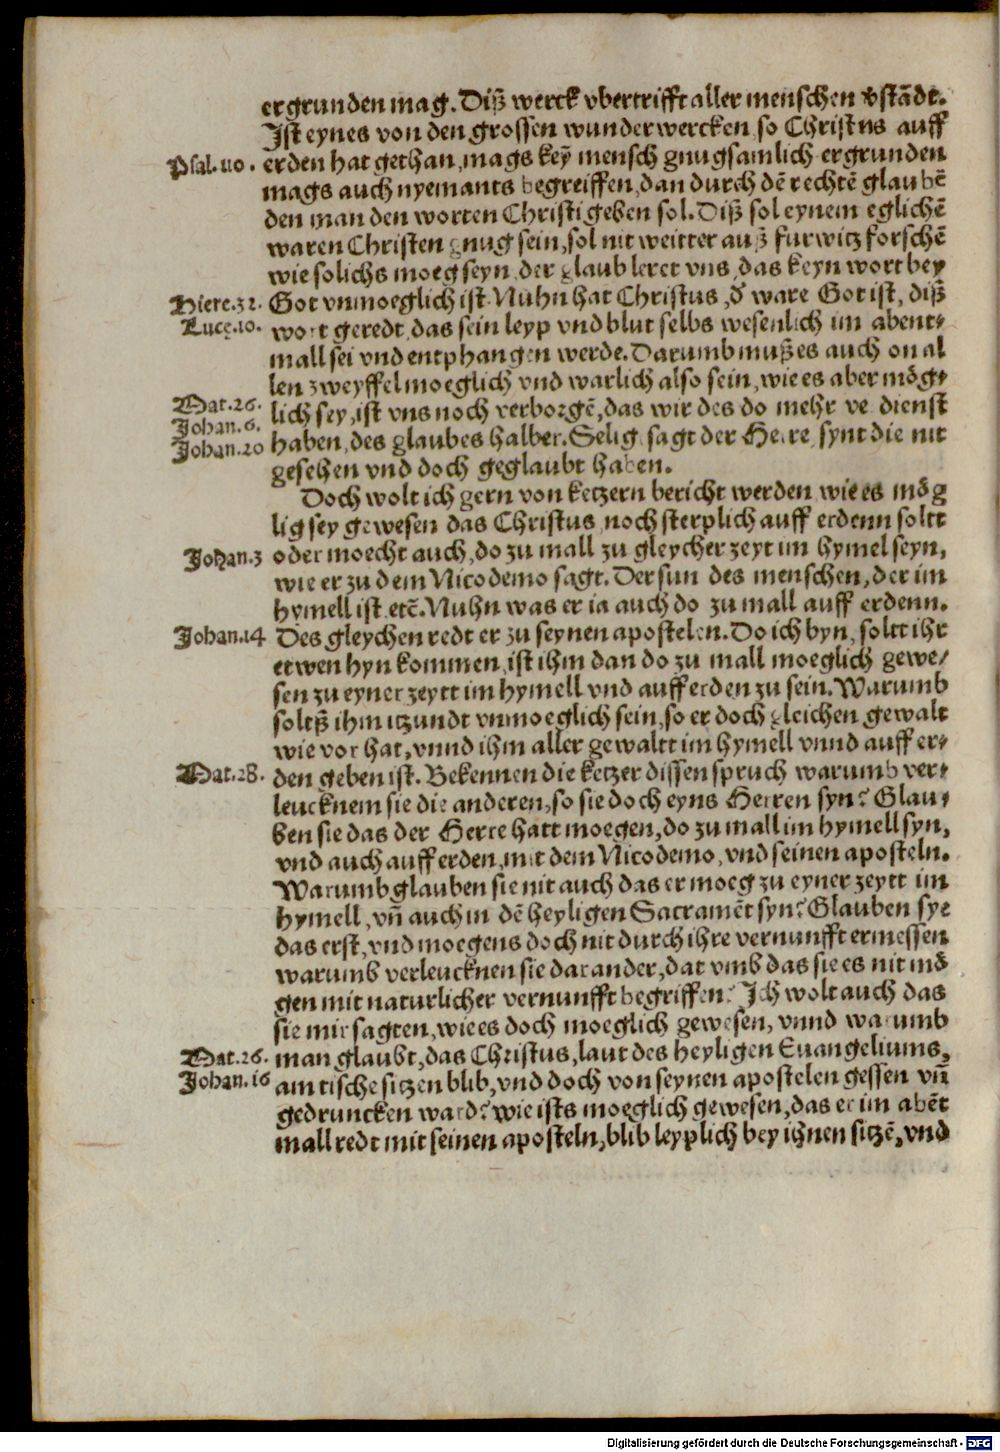 ergrunden mag. Diß werck vbertrifft aller menschen vstãdt.
Ist eynes von den grossen wunderwercken, so Christus auff
Psal. 110. erden hat gethan, mags keỹ mensch gnugsamlich ergrunden
mags auch nyemants begreiffen, dan durch dẽ rechtẽ glaubẽ
den man den worten Christi geben sol. Diß sol eynem eglichẽ
waren Christen gnug sein, sol nit weitter auß furwitz forschẽ
wie solichs moeg seyn, der glaub leret vns, das keyn wort bey
Hiere. 32. Got vnmoeglich ist. Nuhn hat Christus, d ware Got ist, diß
Luce. 10. wort geredt, das sein leyp vnd blut selbs wesenlich im abent⸗
mall sei vnd entphangen werde. Darumb muß es auch on al
len zweyffel moeglich vnd warlich also sein, wie es aber mög⸗
Mat. 26. lich sey, ist vns noch verborgẽ, das wir des do mehr ve dienst
Johan. 6.
Johan. 20 haben, des glaubes halber. Selig, sagt der Herre, synt die nit
gesehen vnd doch geglaubt haben.
Doch wolt ich gern von ketzern bericht werden, wie es mög
lig sey gewesen das Christus noch sterplich auff erdenn soltt
Johan. 3 oder moecht auch, do zu mall zu gleycher zeyt im hymel seyn,
wie er zu dem Nicodemo sagt. Der sun des menschen, der im
hymell ist etc̃. Nuhn was er ia auch do zu mall auff erdenn.
Johan. 14 Des gleychen redt er zu seynen apostelen. Do ich byn, soltt ihr
etwen hyn kommen, ist ihm dan do zu mall moeglich gewe⸗
sen zu eyner zeytt im hymell vnd auff erden zu sein. Warumb
soltß ihm itzundt vnmoeglich sein, so er doch gleichen gewalt
wie vor hat, vnnd ihm aller gewaltt im hymell vnnd auff er⸗
Mat. 28. den geben ist. Bekennen die ketzer dissen spruch warumb ver⸗
leucknem sie die anderen, so sie doch eyns Herren syn? Glau⸗
ben sie das der Herre hatt moegen, do zu mall im hymell syn,
vnd auch auff erden, mit dem Nicodemo, vnd seinen aposteln.
Warumb glauben sie nit auch das er moeg zu eyner zeytt im
hymell, vñ auch in dẽ heyligen Sacramẽt syn? Glauben sye
das erst, vnd moegens doch nit durch ihre vernunfft ermessen
warumb verleucknen sie dar ander, dat vmb das sie es nit mö
gen mit naturlicher vernunfft begriffen? Ich wolt auch das
sie mir sagten, wie es doch moeglich gewesen, vnnd warumb
Mat. 26. man glaubt, das Christus, laut des heyligen Euangeliums,
Johan. 16 am tische sitzen blib, vnd doch von seynen apostelen gessen vñ
gedruncken ward? wie ists moeglich gewesen, das er im abẽt
mall redt mit seinen aposteln, blib leyplich bey ihnen sitzẽ, vnd
Digitalisierung gefördert durch die Deutsche Forschungsgemeinschaft - DFG